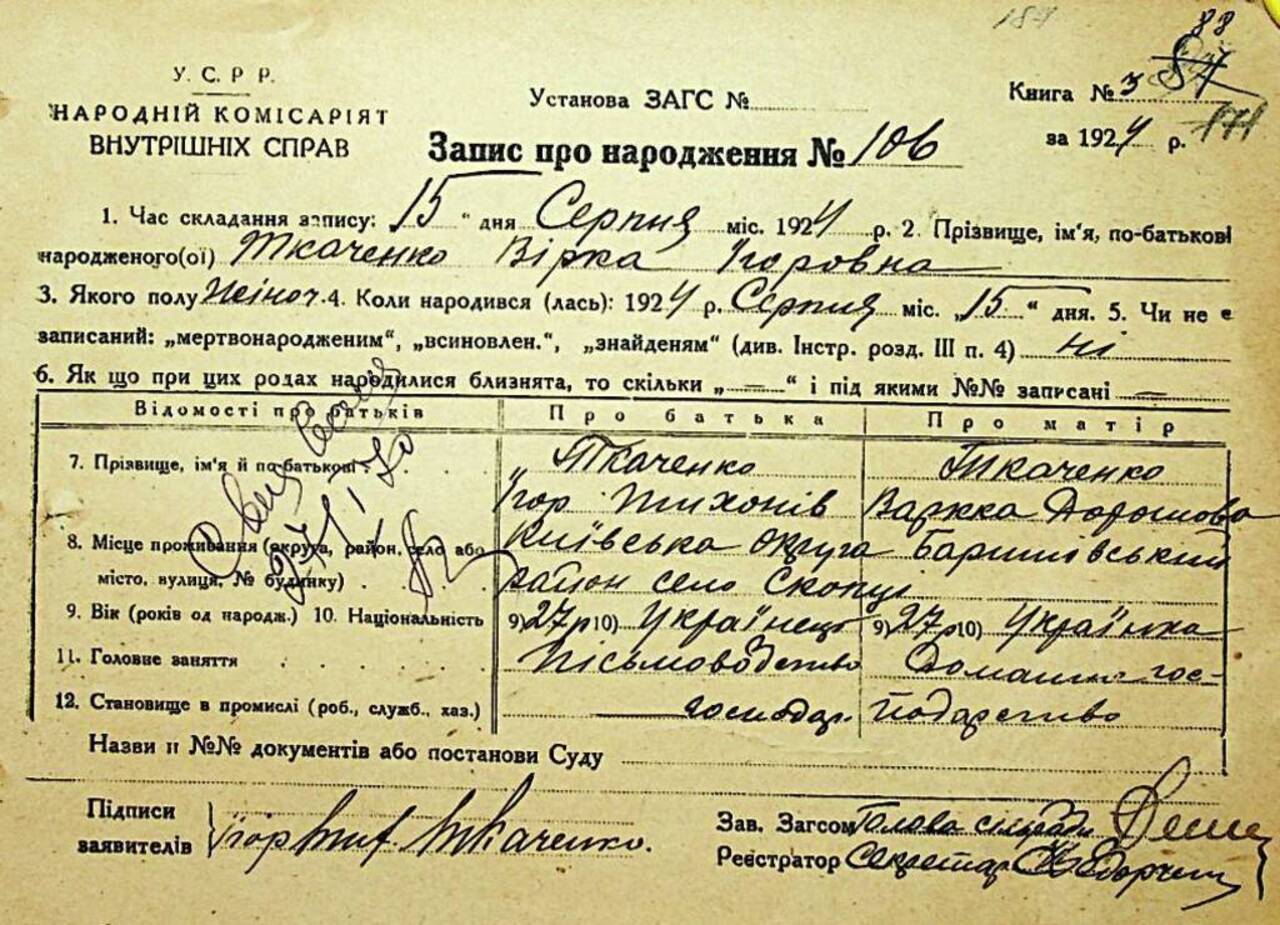 184
88
У. С. Р Р.
НАРОДНІЙ КОМІСАРІЯТ
ВНУТРІШНІХ СПРАВ
Установа ЗАГС №
Книга № 3 87
за 1924 р. 171
Запис про народження № 106
1. Час складання запису: 15 " дня Серпня міс. 1924 р. 2. Прізвище, ім'я, по-батькові
народженого(ої) Ткаченко Вірка Ігоровна
3. Якого полу Жіноч. 4. Коли народився (лась): 1924 р. Серпня міс. „15 “ дня. 5. Чи не є
записаний: „мертвонародженим“, „всиновлен.“, „знайденям“ (див. Інстр. розд. III п. 4) ні
6. Як що при цих родах народилися близнята, то скільки „ — “ і під якими №№ записані —
Відомості про батьків Про батька Про матір
7. Прізвище, ім'я й по-батькові . Ткаченко Ткаченко
Ігор Тихонів Варкка Дорошова
8. Місце проживання (округа, район, село або Київська округа Баришівський
місто, вулиця, № будинку) . . район село Скопці
9. Вік (років од народж.) 10. Національність 9) 27 р 10) Українець 9) 27 р 10) Українка
11. Головне заняття . . . . . Пісьмоводство Домашнє гос-
12. Становище в промислі (роб., служб., хаз.) господар. подарство
Назви и №№ документів або постанови Суду
Підписи
заявителів Ігор Тиг. Ткаченко.
Зав. Загсом Голова сільради
Реєстратор Секретар